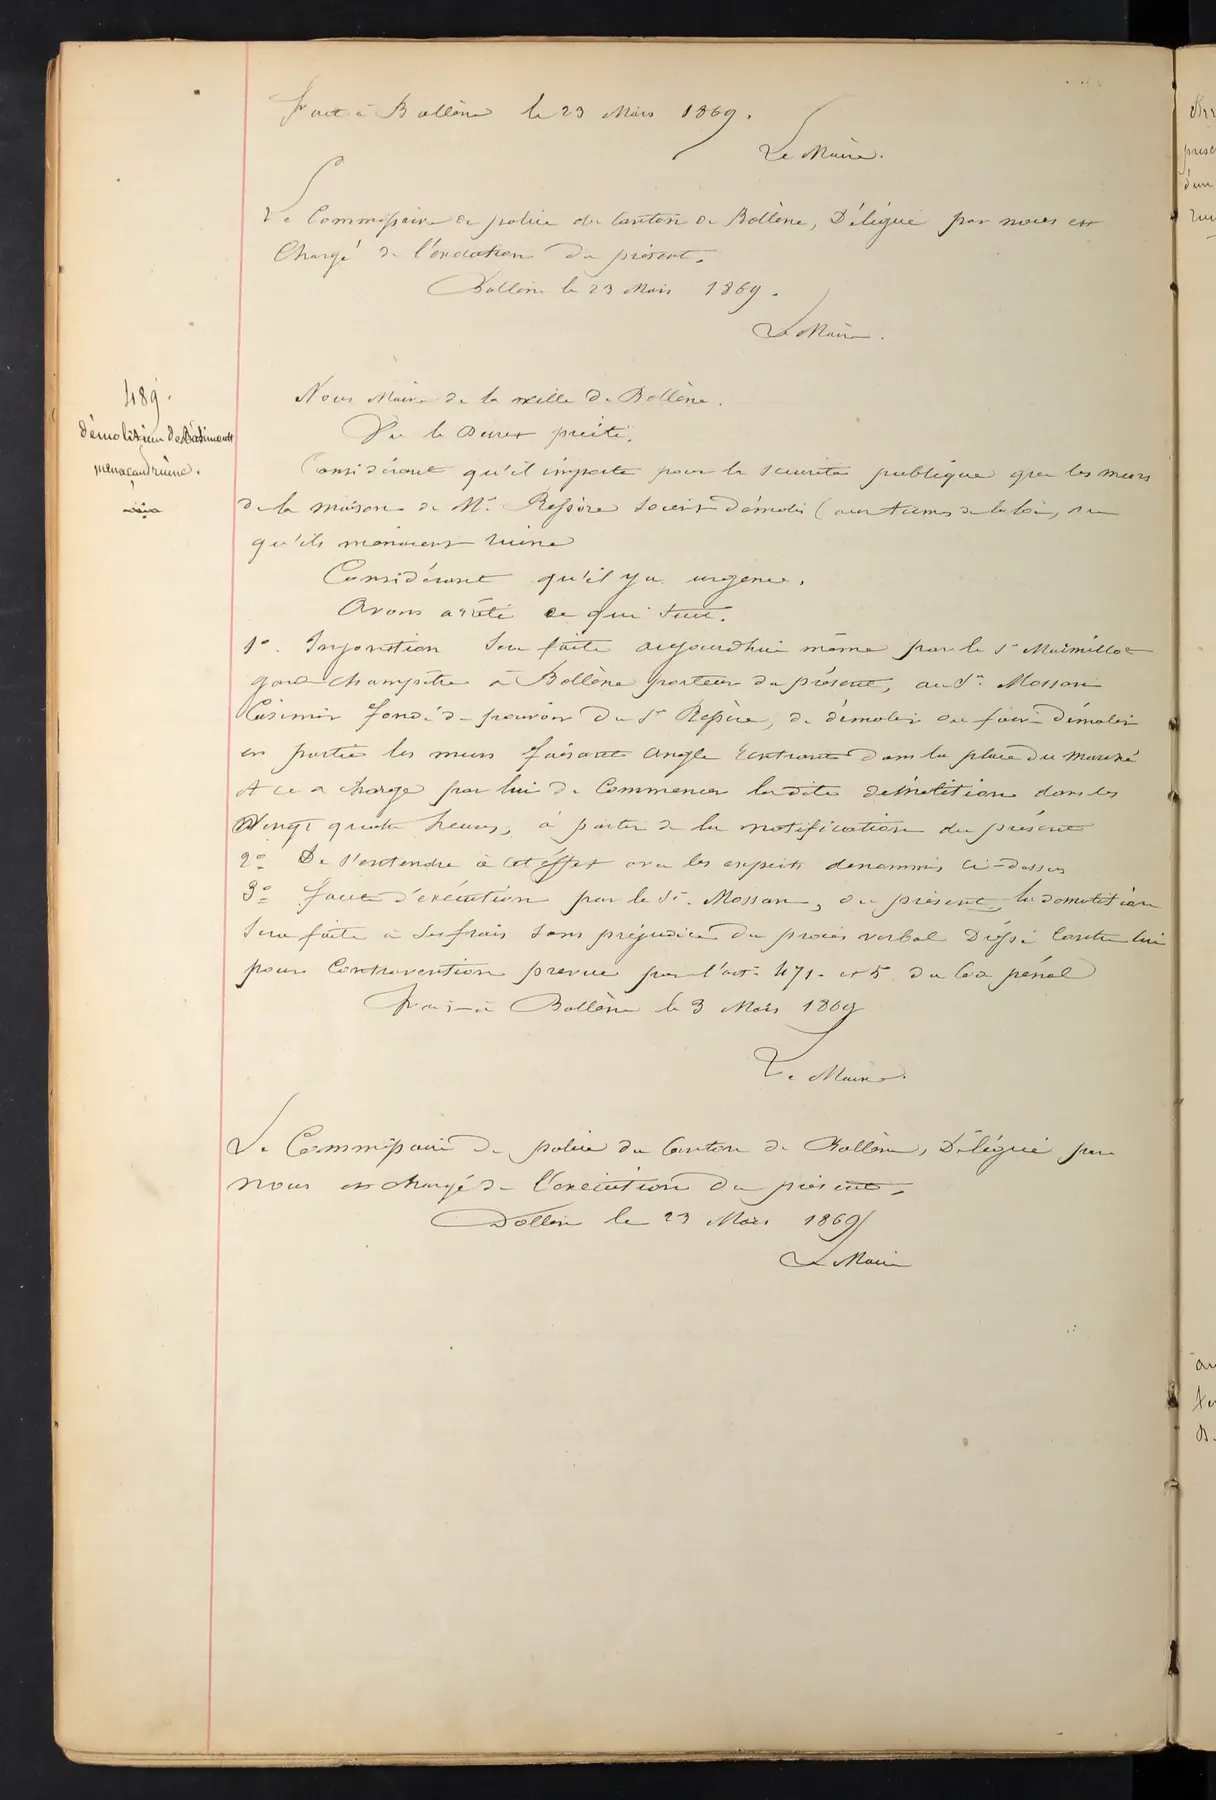 Fait à Bollène le 23 Mars 1869.
Le Maire.
Le Commissaire de police du Canton de Bollène, Délégué par nous est
Chargé de l'éxécution du présent.
Bollène le 23 Mars 1869.
Le Maire.
489.
démolition de Bâtiments
menaçant ruine.
Nous Maire de la ville de Bollène.
Vu le Decret précité.
Considérant qu'il importe pour la sécurité publique que les murs
de la maison de Mr. Ressère soient démolis (aux termes de la loi, vu
qu'ils menacent ruine
Considérant qu'il y a urgence.
Avons arrêté ce qui suit.
1o. Injonction sera faite aujourdhui même par le Sr
garde champêtre à Bollène porteur du présent, au Sr. Mossan
Casimir fondé de pouvoir du Sr Ressère, de démolir ou faire démolir
en partie les murs faisant angle rentrant dans la place du marché
et ce a charge par lui de Commencer la dite démolition dans les
Vingt quatre heures, à partir de la notification du présent
2o De s'entendre à cet éffet avec les experts dénommés ci-dessus
3o faute d'exécution par le Sr. Mossan, du présent, la démolition
sera faite à ses frais sans préjudice du procès verbal Dressé contre lui
pour Contravention prevue par l'art. 471. et 5 du Code pénal
Fait à Bollène le 3 Mars 1869
Le Maire.
Le Commissaire de police du Canton de Bollène, Délégué par
nous est chargé de l'exécution du présent.
Bollène le 23 Mars 1869
Le Maire